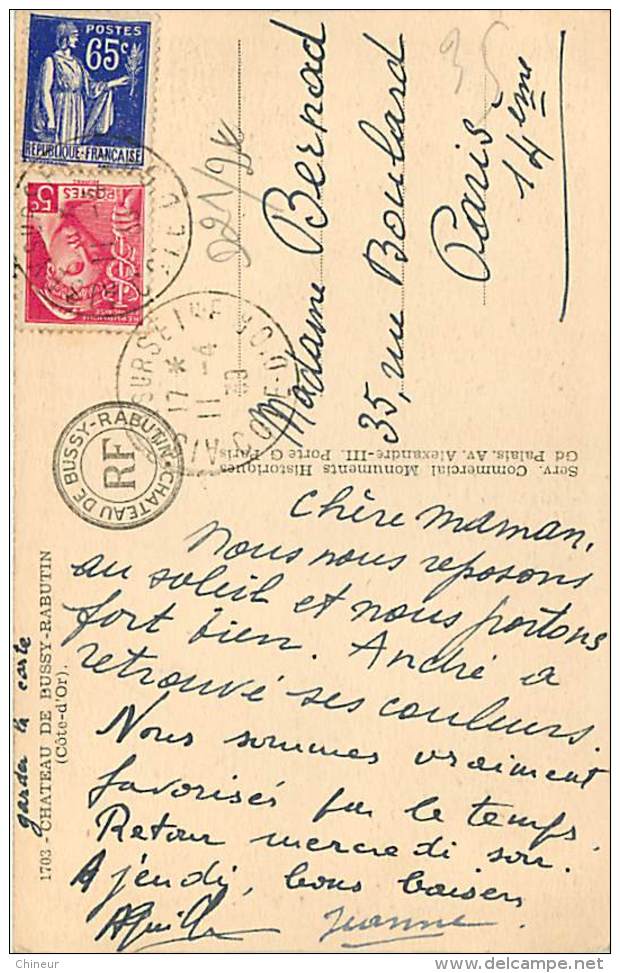 POSTES
65c
REPUBLIQUE-FRANÇAISE
5c
POSTES
SUR SEINE
17 *
11 -4
39
CÔTE-D'OR
35
Madame Bernad
35, rue Boulard
Paris
14ème
Serv. Commercial Monuments Historiques
Gd Palais. Av. Alexandre-III. Porte G Paris
CHATEAU DE BUSSY-RABUTIN
RF
1703 - CHATEAU DE BUSSY-RABUTIN
(Côte-d'Or).
garder la carte
Chère maman,
Nous nous reposons
au soleil et nous portons
fort bien. André a
retrouvé ses couleurs.
Nous sommes vraiment
favorisés par le temps.
Retour mercredi soir.
A jeudi, bons baisers
Jeanne